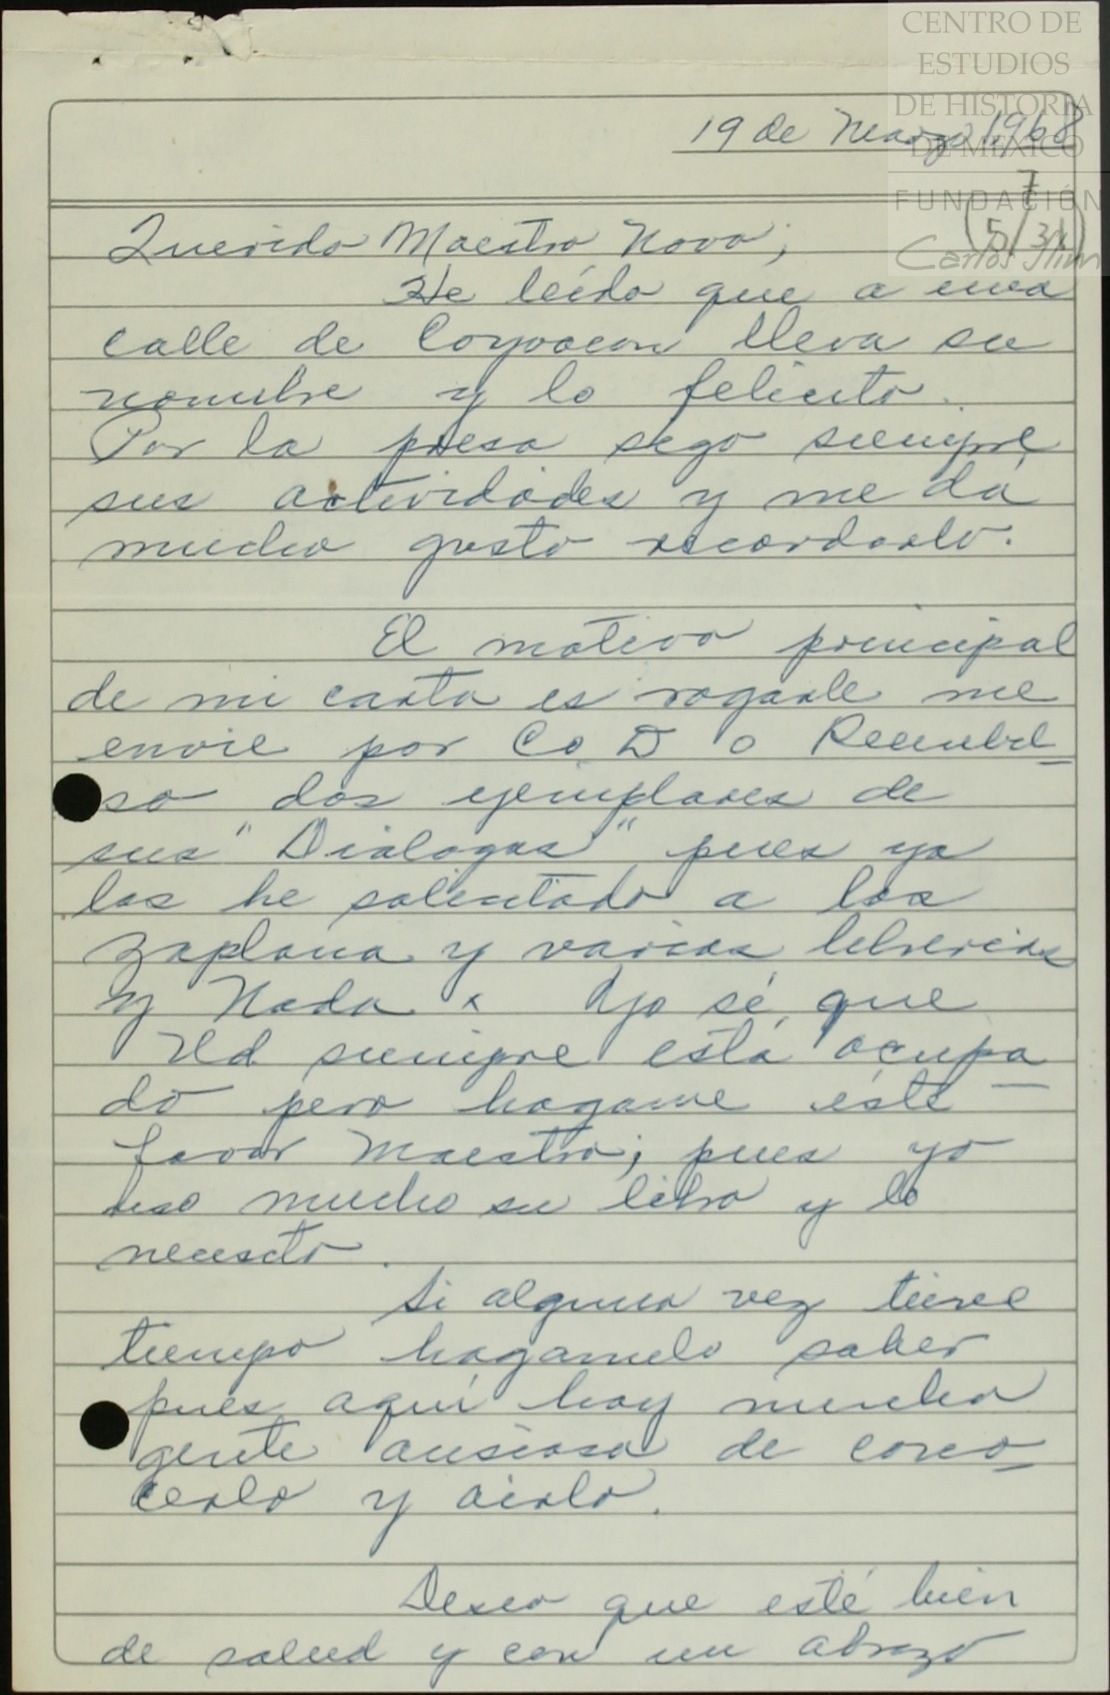 CENTRO DE
ESTUDIOS
DE HISTORIA
DE MÉXICO
FUNDACIÓN
Carlos Slim
19 de Marzo 1968
7
(5/31)
Querido Maestro Novo;
He leído que a una
calle de Coyoacan lleva su
nombre y lo felicito.
Por la presa sego siempre
sus actividades y me dá
mucho gusto recordarlo.
El motivo principal
de mi carta es rogarle me
envie por C.o.D o Reembol_
so dos ejemplares de
sus "Dialogos" pues ya
los he solicitado a los
Zaplana y varias librerias
y Nada. Yo sé que
Ud siempre está ocupa_
do pero hagame éste
favor Maestro; pues yo
uso mucho su libro y lo
necesito.
Si alguna vez tiene
tiempo hagamelo saber
pues aquí hay mucha
gente ansiosa de cono_
cerlo y oirlo.
Deseo que esté bien
de salud y con un abrazo